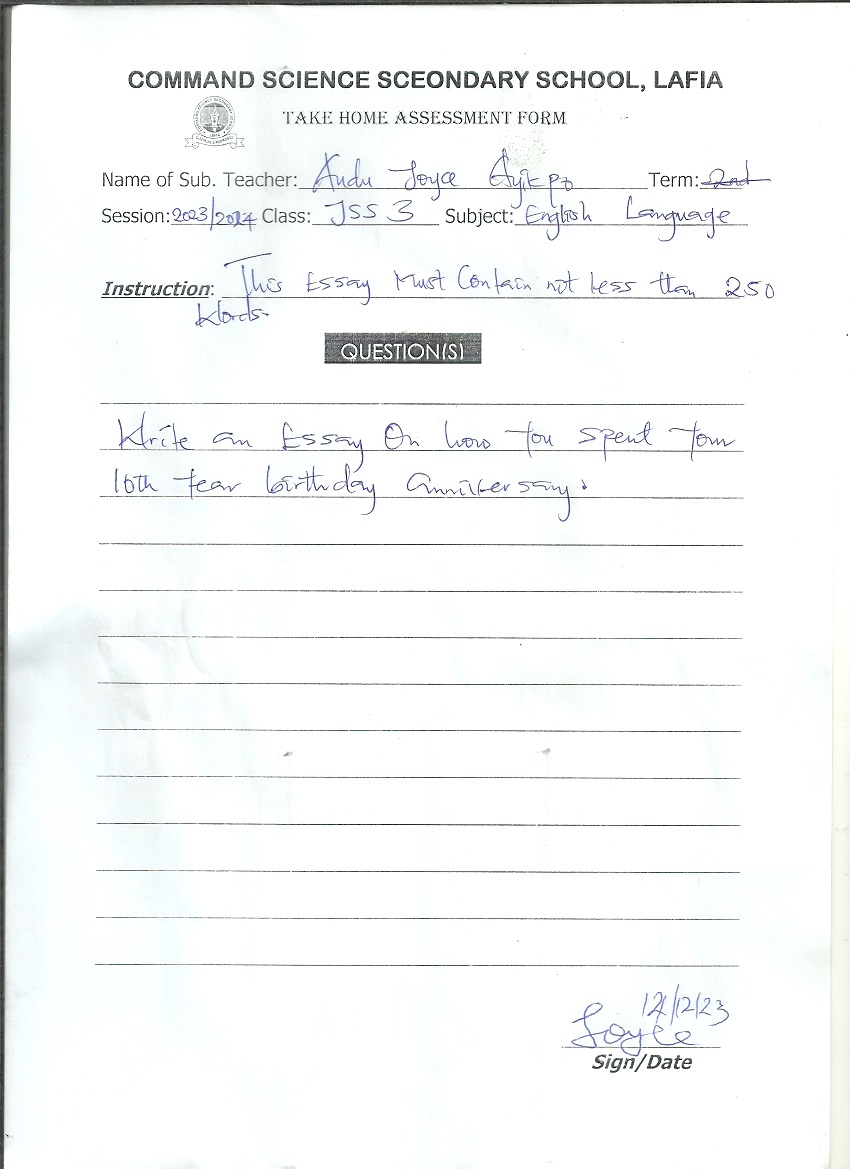 COMMAND SCIENCE SCEONDARY SCHOOL, LAFIA
TAKE HOME ASSESSMENT FORM
Name of Sub. Teacher: Audu Joyce Ayikpo Term: 2nd
Session: 2023/2024 Class: JSS 3 Subject: English Language
Instruction: This Essay Must Contain not less than 250
Words.
QUESTION(S)
Write an Essay On how You spent Your
10th Year birthday anniversary.
12/12/23
Joyce
Sign/Date